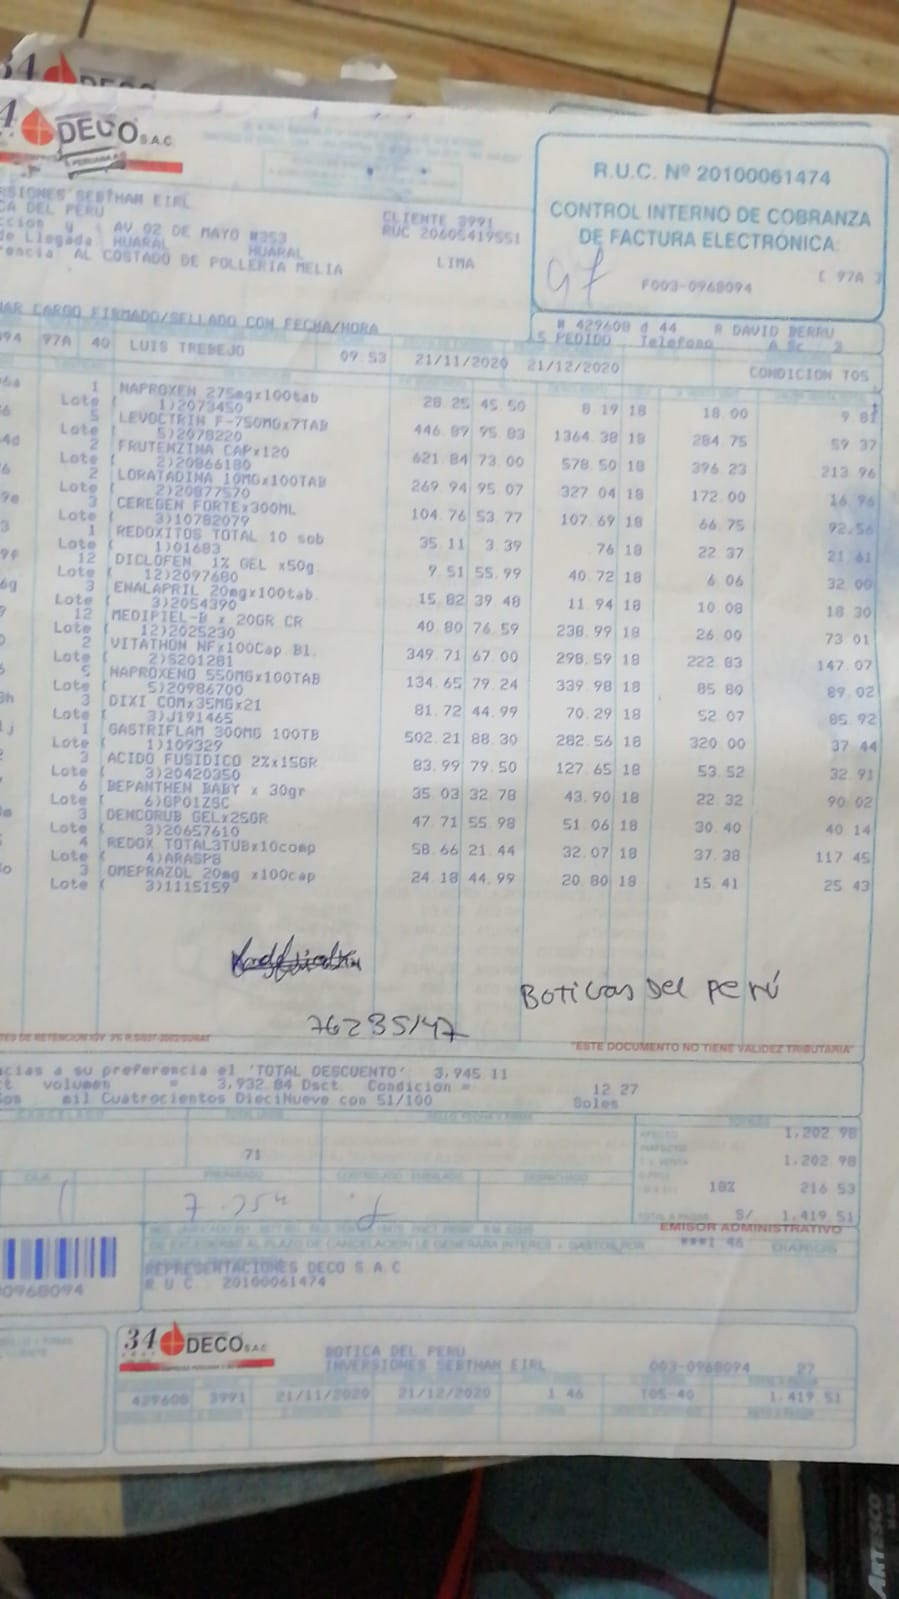 34 DECO
34 DECO S.A.C
R.U.C. Nº 20100061474
CONTROL INTERNO DE COBRANZA
DE FACTURA ELECTRÓNICA
F003-0968094 [ 97A ]
RSIONES SEBTHAN EIRL
CA DEL PERU
CLIENTE 3991
ccion y : AV 02 DE MAYO #353 RUC 20605419551
de Llegada HUARAL HUARAL
rencia AL COSTADO DE POLLERIA MELIA LIMA
AR CARGO FIRMADO/SELLADO CON FECHA/HORA
# 429608 d 44 R DAVID BERRU
PEDIDO Telefono
094 97A 40 LUIS TREBEJO 09 53 21/11/2020 21/12/2020 CONDICION T05
1 NAPROXEN 275mgx100tab 28.25 45.50 8 19 18 18.00 9 81
Lote ( 1)2073450
5 LEVOCTRIN F-750MGx7TAB 446.89 95.83 1364.38 18 284.75 59 37
Lote ( 5)2078220
2 FRUTENZINA CAPx120 621.84 73.00 578.50 18 396.23 213 96
Lote ( 2)20866180
2 LORATADINA 10MGx100TAB 269 94 95.07 327 04 18 172 00 16 96
Lote ( 2)20877570
3 CEREGEN FORTEx300ML 104 76 53.77 107 69 18 66 75 92.56
Lote ( 3)10782079
1 REDOXITOS TOTAL 10 sob 35.11 3.39 .76 18 22 37 21 61
Lote ( 1)01683
12 DICLOFEN 1% GEL x50g 9.51 55.99 40.72 18 6 06 32 00
Lote ( 12)2097680
3 ENALAPRIL 20mgx100tab. 15.82 39 48 11 94 18 10 08 18 30
Lote ( 3)2054390
12 MEDIPIEL-B x 20GR CR 40.80 76.59 238.99 18 26 00 73 01
Lote ( 12)2025230
2 VITATHON NFx100Cap B1. 349 71 67 00 298.59 18 222 83 147 07
Lote ( 2)S201281
5 NAPROXENO 550MGx100TAB 134 65 79 24 339 98 18 85 80 89 02
Lote ( 5)20986700
3 DIXI COMx35MGx21 81 72 44 99 70 29 18 52 07 85 92
Lote ( 3)J191465
1 GASTRIFLAM 300MG 100TB 502 21 88 30 282 56 18 320 00 37 44
Lote ( 1)109329
3 ACIDO FUSIDICO 2%x15GR 83 99 79 50 127 65 18 53 52 32 91
Lote ( 3)20420350
6 BEPANTHEN BABY x 30gr 35 03 32 78 43 90 18 22 32 90 02
Lote ( 6)GP01ZSC
3 DENCORUB GELx25GR 47 71 55 98 51 06 18 30 40 40 14
Lote ( 3)20657610
4 REDOX TOTAL3TUBx10comp 58 66 21 44 32 07 18 37 38 117 45
Lote ( 4)ARASP8
3 OMEPRAZOL 20mg x100cap 24 18 44 99 20 80 18 15 41 25 43
Lote ( 3)1115159
BOTICAS DEL PERÚ
76235147
"ESTE DOCUMENTO NO TIENE VALIDEZ TRIBUTARIA"
cias a su preferencia el 'TOTAL DESCUENTO' 3,945 11
volumen = 3,932 84 Dsct. Condicion = 12 27
mil Cuatrocientos DieciNueve con 51/100 Soles
1,202 98
71
1,202 98
18% 216 53
TOTAL A PAGAR S/ 1,419 51
EMISOR ADMINISTRATIVO
***1 46
REPRESENTACIONES DECO S A C
R.U.C. 20100061474
0968094
34 DECO S.A.C
BOTICA DEL PERU
INVERSIONES SEBTHAN EIRL 003-0968094 27
429608 3991 21/11/2020 21/12/2020 1 46 T05-40 1.419 51
ARTESCO